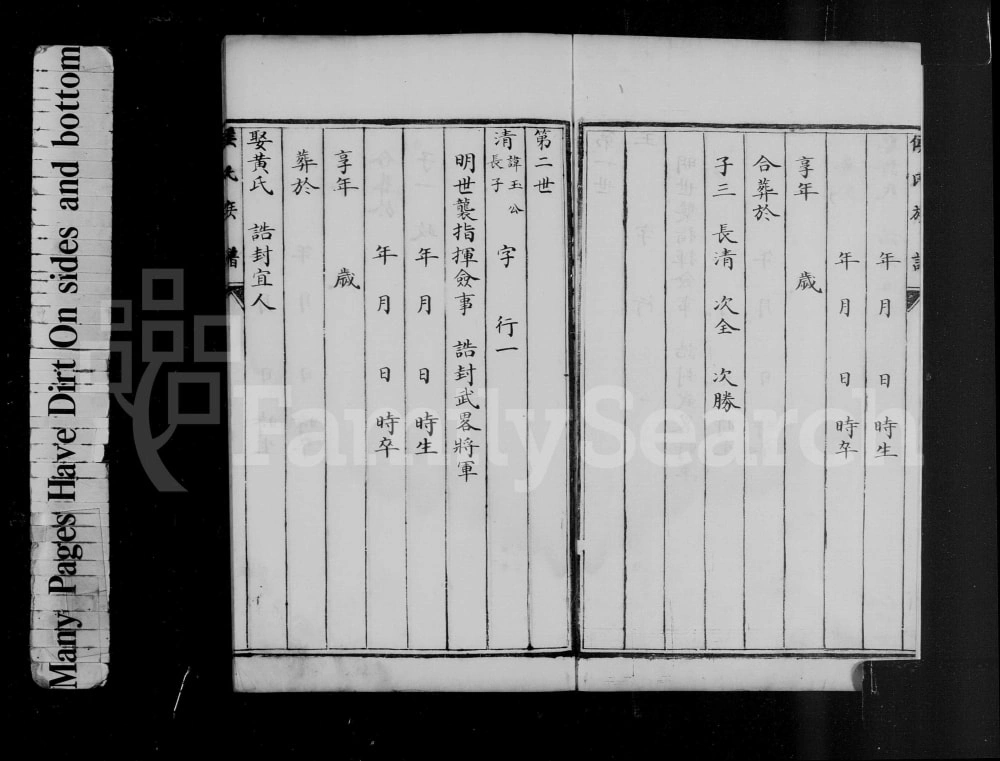 Many Pages Have Dirt On sides and bottom
侯氏族譜
年 月 日 時生
年 月 日 時卒
享年 歲
合葬於
子三 長清 次全 次勝
第二世
清 諱玉公長子 字 行一
明世襲指揮僉事 誥封武畧將軍
年 月 日 時生
年 月 日 時卒
享年 歲
葬於
娶黃氏 誥封宜人
侯氏族譜
FamilySearch